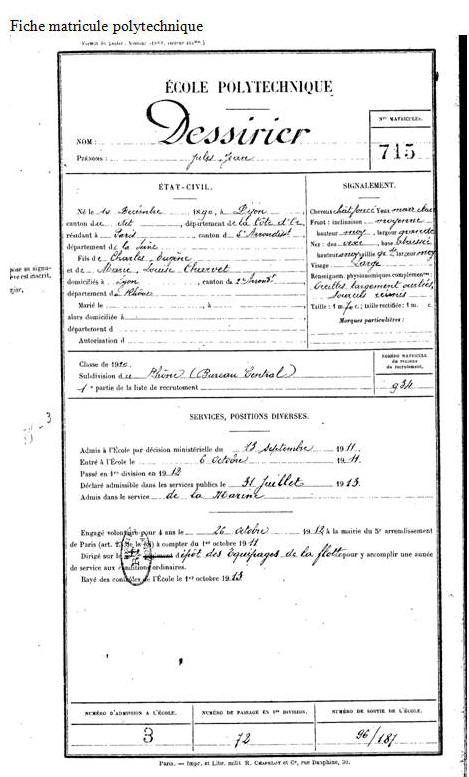 Fiche matricule polytechnique
ÉCOLE POLYTECHNIQUE
NOM : Dessirier
PRÉNOMS : Jules Jean
Nos MATRICULES.
715
ÉTAT-CIVIL.
Né le 10 Décembre 1890, à Dijon
canton du dit, département de la Côte d'Or
résidant à Paris, canton du 5e Arrondisst
département de la Seine
Fils de Charles Eugène
et de Marie Louise
domiciliés à Lyon, canton de 2e Arrondt
département du Rhône
Marié le , à
alors domiciliée à
département d
Autorisation d
SIGNALEMENT.
Cheveux chât foncé Yeux
Front : inclinaison moyenne
hauteur moy, largeur grande
Nez : dos vexe, base
hauteur moy saillie gde largeur moy
Visage large
Renseignem. physionomiques complémenres
Oreilles largement ourlées,
sourcils réunis
Taille : 1 m. 70 c.; taille rectifiée : 1 m. c.
Marques particulières :
pour sa signa-
re est inscrit.
Classe de 1910.
Subdivision du Rhône (Bureau Central)
1e partie de la liste de recrutement
NUMÉRO MATRICULE
du registre
de recrutement.
934
SERVICES, POSITIONS DIVERSES.
Admis à l'École par décision ministérielle du 13 Septembre 1911
Entré à l'École le 6 Octobre 1911.
Passé en 1re division en 1912
Déclaré admissible dans les services publics le 31 Juillet 1913.
Admis dans le service de la Marine
Engagé volontaire pour 4 ans le 26 octobre 1912 à la mairie du 5e arrondissement
de Paris (art. 23 de la loi) à compter du 1er octobre 1911
Dirigé sur le dépôt des équipages de la flotte pour y accomplir une année
de service aux conditions ordinaires.
Rayé des contrôles de l'École le 1er octobre 1913
NUMÉRO D'ADMISSION A L'ÉCOLE.
NUMÉRO DE PASSAGE EN 1re DIVISION.
NUMÉRO DE SORTIE DE L'ÉCOLE.
3
72
96/187
Paris. — Impr. et Libr. milit. R. CHAPELOT et Ce, rue Dauphine, 30.